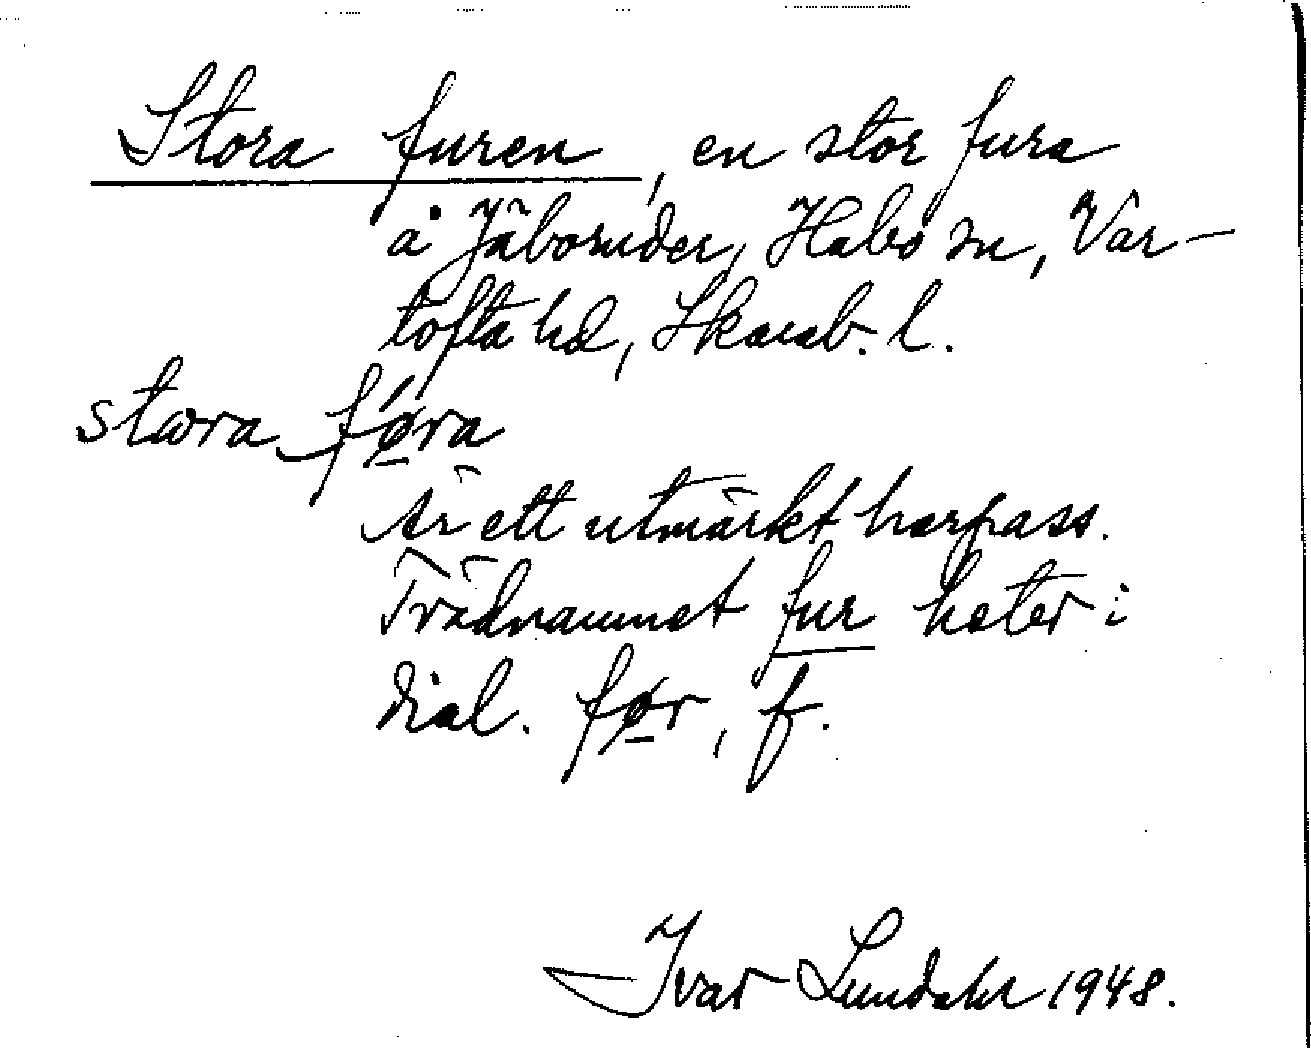 Stora furen, en stor fura
å Jäboruder, Habo sn, Var-
tofta hd, Skarab. l.
stora føra
Är ett utmärkt harpass.
Trädnamnet fur heter i
dial. før, f.
Ivar Lundahl 1948.